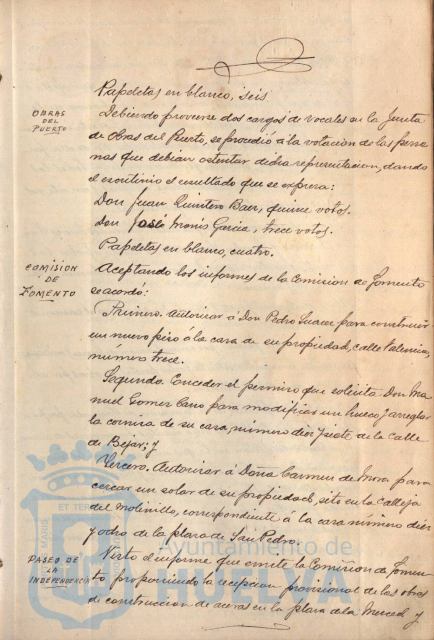 Papeletas en blanco, seis
OBRAS
DEL
PUERTO
Debiendo proveerse dos cargos de vocales en la Junta
de Obras del Puerto, se procedió á la votacion de las perso
nas que debian ostentar dicha representacion, dando
el escrutinio el resultado que se expresa:
Don Juan Quintero Baez, quince votos.
Don José Monis Garcia, trece votos.
Papeletas en blanco, cuatro.
COMISION
DE
FOMENTO
Aceptando los informes de la Comision de Fomento
se acordó:
Primero. Autorizar á Don Pedro Suarez para construir
un nuevo piso á la casa de su propiedad, calle Palencia,
número trece.
Segundo. Conceder el permiso que solicita Don Ma
nuel Gomez Cano para modificar un hueco y arreglar
la cornisa de su casa, número diez y siete de la calle
de Bejar; y
Tercero. Autorizar á Doña Carmen de Mora para
cercar un solar de su propiedad, sito en la Calleja
del Molinillo, correspondiente á la casa número diez
y ocho de la plaza de San Pedro.
PASEO DE
LA
INDEPENDENCIA
Visto el informe que emite la Comision de Fomen
to proponiendo la recepcion provisional de las obras
de construccion de aceras en la plaza de la Merced y
Ayuntamiento de
HUELVA